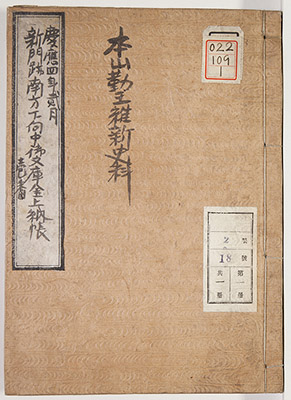 本山勤王維新史料
慶應四年弐月
新門跡南方下向中御文庫金上納帳
022
109
1
第一冊
共一冊
18